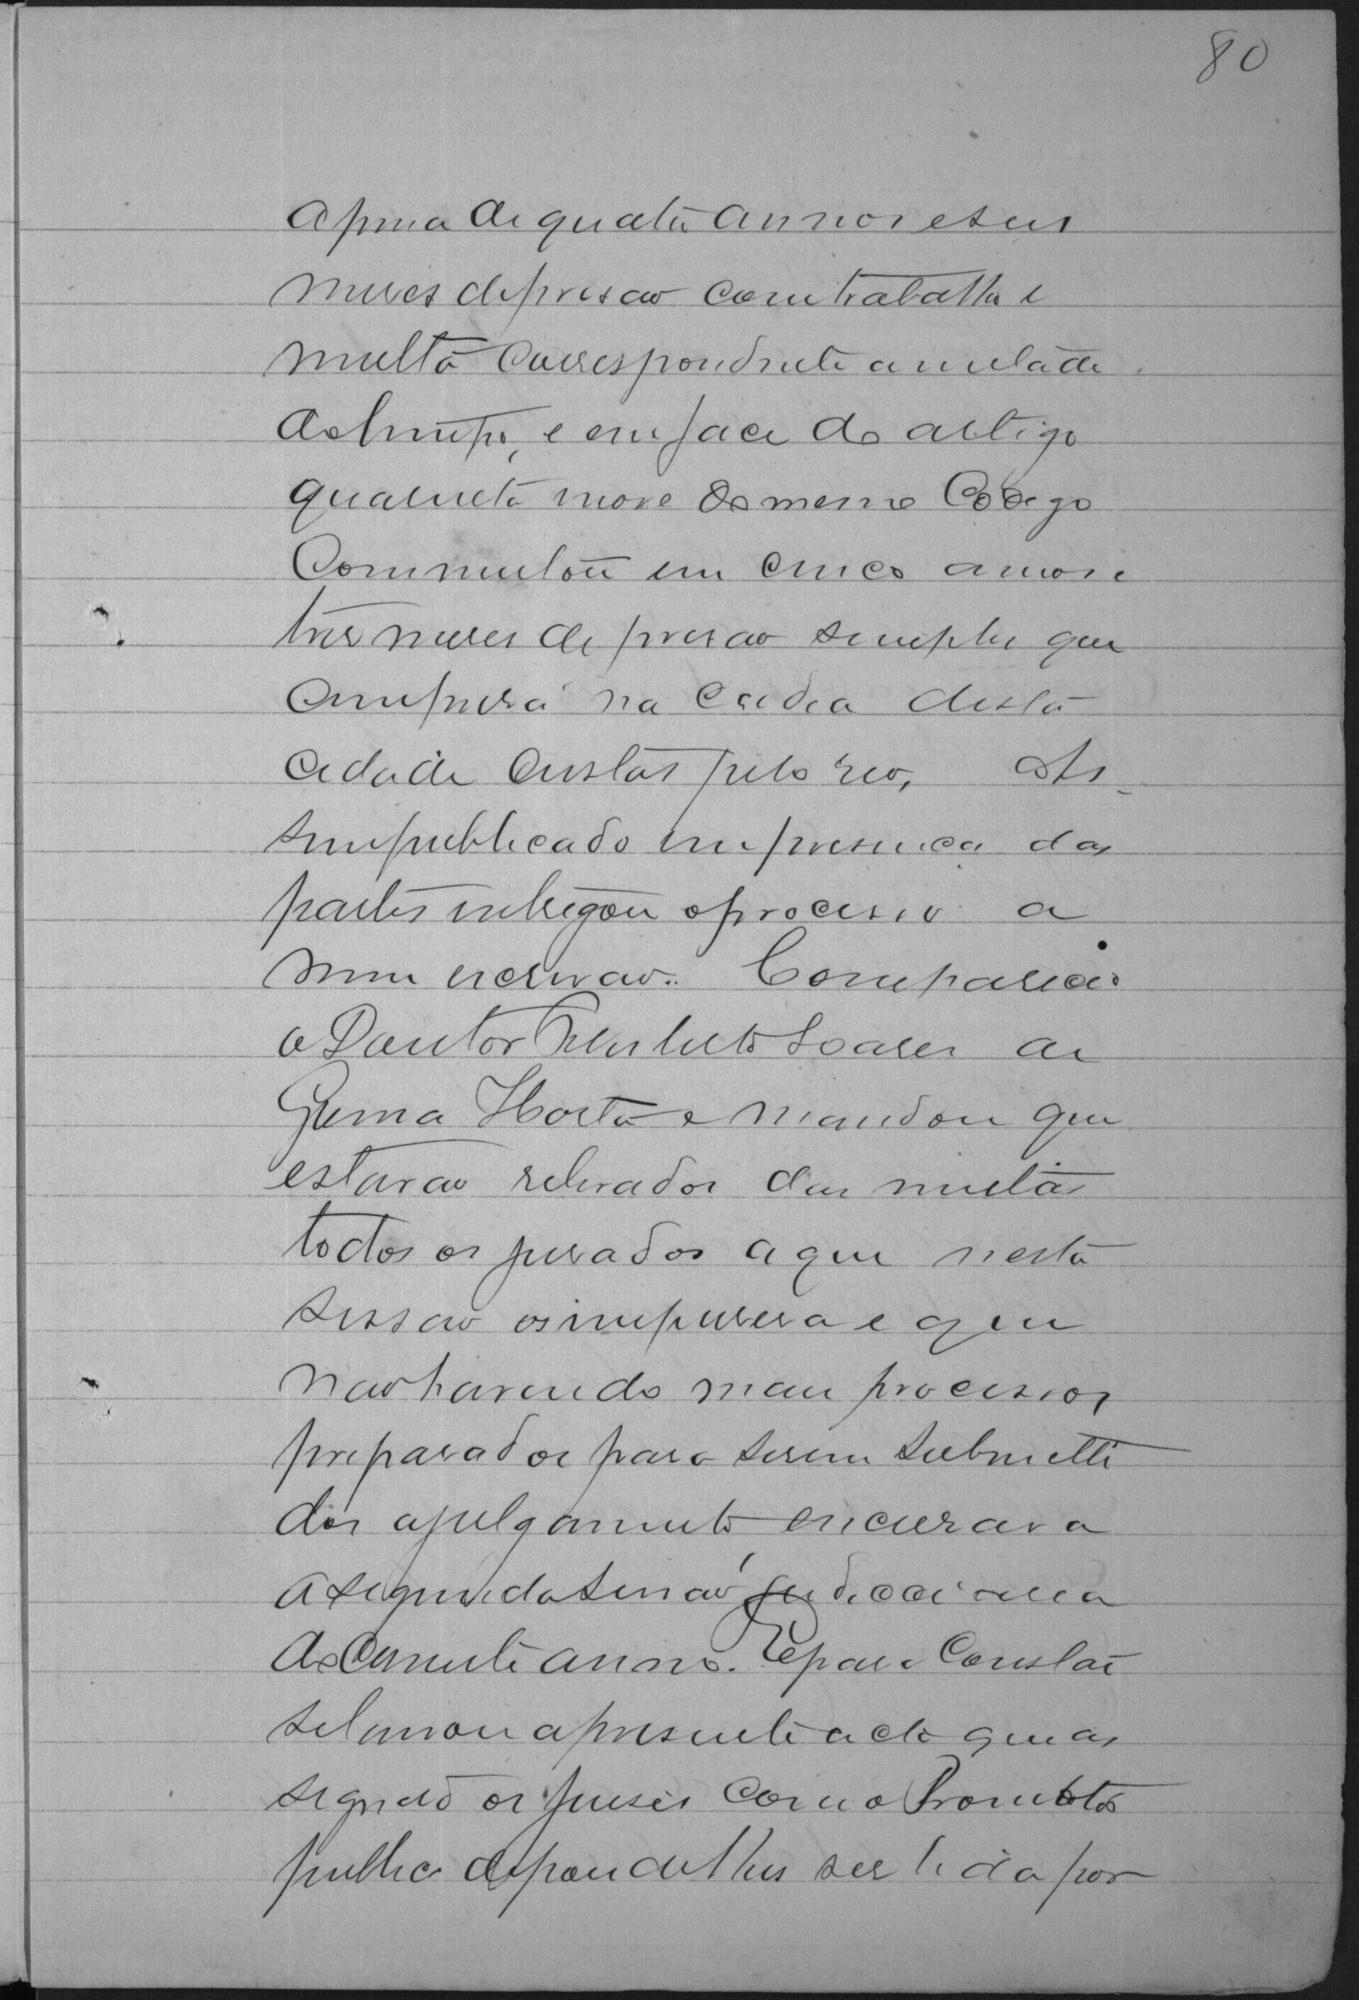 80
a pena de quatro annos e seis
meses de prisão com trabalho e
multa correspondente a metade
do tempo, e em face do artigo
quarenta nove do mesmo Codigo
Commutou em cinco annos e
tres meses de prisão simples que
cumprirá na cadea desta
cidade custas pelo reo,
sim publicado em presença das
partes entregou o processo a
mim escrivão. Compareceo
o Doutor Soares de
Gama Horta e mandou que
estavão relevados das multas
todos os jurados a que nesta
sessão os impusera e que
não havendo mais processos
preparados para serem submetti
dos a julgamento encerrava
a segunda sessão judicciaria
do corrente anno. E para constar
se lavrou a presente acta que as
signão os juises com o Promotor
publico depois de lhes ser lida por